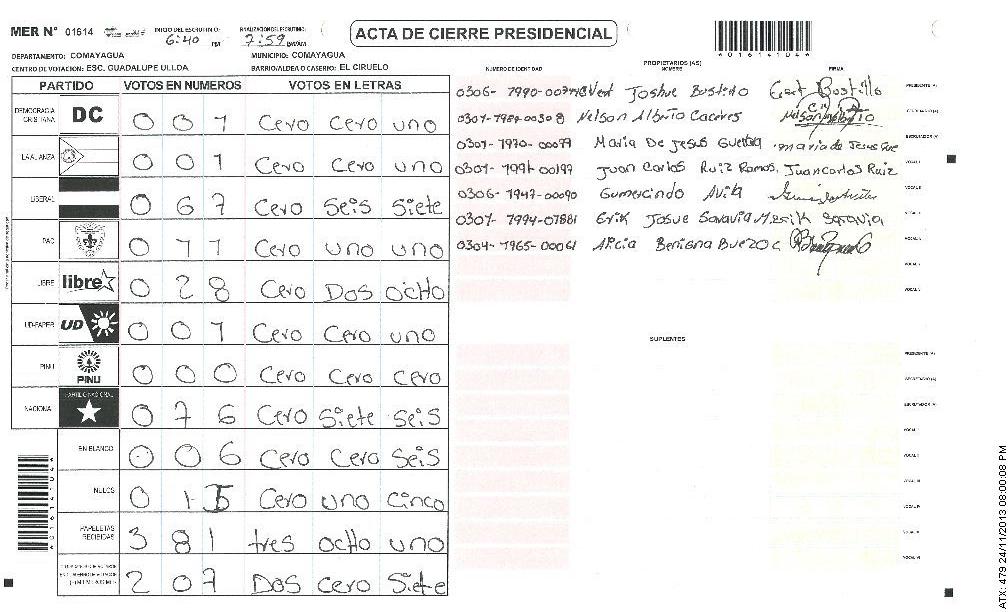 MER N° 01614
INICIO DEL ESCRUTINIO: 6:40 PM
7:59
ACTA DE CIERRE PRESIDENCIAL
DEPARTAMENTO: COMAYAGUA MUNICIPIO: COMAYAGUA
CENTRO DE VOTACION: ESC. GUADALUPE ULLOA BARRIO/ALDEA O CASERIO: EL CIRUELO
PARTIDO VOTOS EN NUMEROS VOTOS EN LETRAS
DEMOCRACIA CRISTIANA DC 0 0 1 Cero Cero uno
LA ALIANZA 0 0 1 Cero Cero uno
LIBERAL 0 6 7 Cero Seis Siete
PAC 0 1 1 Cero uno uno
LIBRE libre 0 2 8 Cero Dos ocho
UD-FAPER UD 0 0 1 Cero Cero uno
PINU PINU 0 0 0 Cero Cero Cero
NACIONAL PARTIDO NACIONAL 0 7 6 Cero Siete Seis
EN BLANCO 0 0 6 Cero Cero Seis
NULOS 0 1 5 Cero uno Cinco
PAPELETAS RECIBIDAS 3 8 1 tres ocho uno
2 0 7 Dos Cero Siete
PROPIETARIOS (AS)
NUMERO DE IDENTIDAD NOMBRE FIRMA
Joshue Bustillo Bustillo PRESIDENTE (A)
0301-1984-00308 Nelson Caceres SECRETARIO (A)
0301-1970-00099 Maria De Jesus Maria de Jesus ESCRUTADOR (A)
0301-1991-00197 Juan Carlos Ruiz Ramos Juan Carlos Ruiz VOCAL I
0306-1947-00090 Gumercindo Avila VOCAL II
0301-1994-01881 Erik Josue Saravia M. Erik Saravia VOCAL III
0304-1965-00061 Alicia Benigna Buezo C VOCAL IV
VOCAL V
VOCAL VI
SUPLENTES
PRESIDENTE (A)
SECRETARIO (A)
ESCRUTADOR (A)
VOCAL I
VOCAL II
VOCAL III
VOCAL IV
VOCAL V
VOCAL VI
ATX: 479 24/11/2013 08:00:08 PM